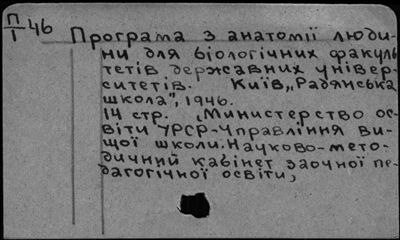 П/І 46
Програма з анатомії люди-
ни для біологічних факуль
тетів державних універ-
ситетів. Київ,"Радянська
школа", 1946.
14 стр. (Министерство ос-
віти УРСР-Управління ви-
щої школи.Науково-мето-
дичний кабінет заочної пе-
дагогічної освіти)